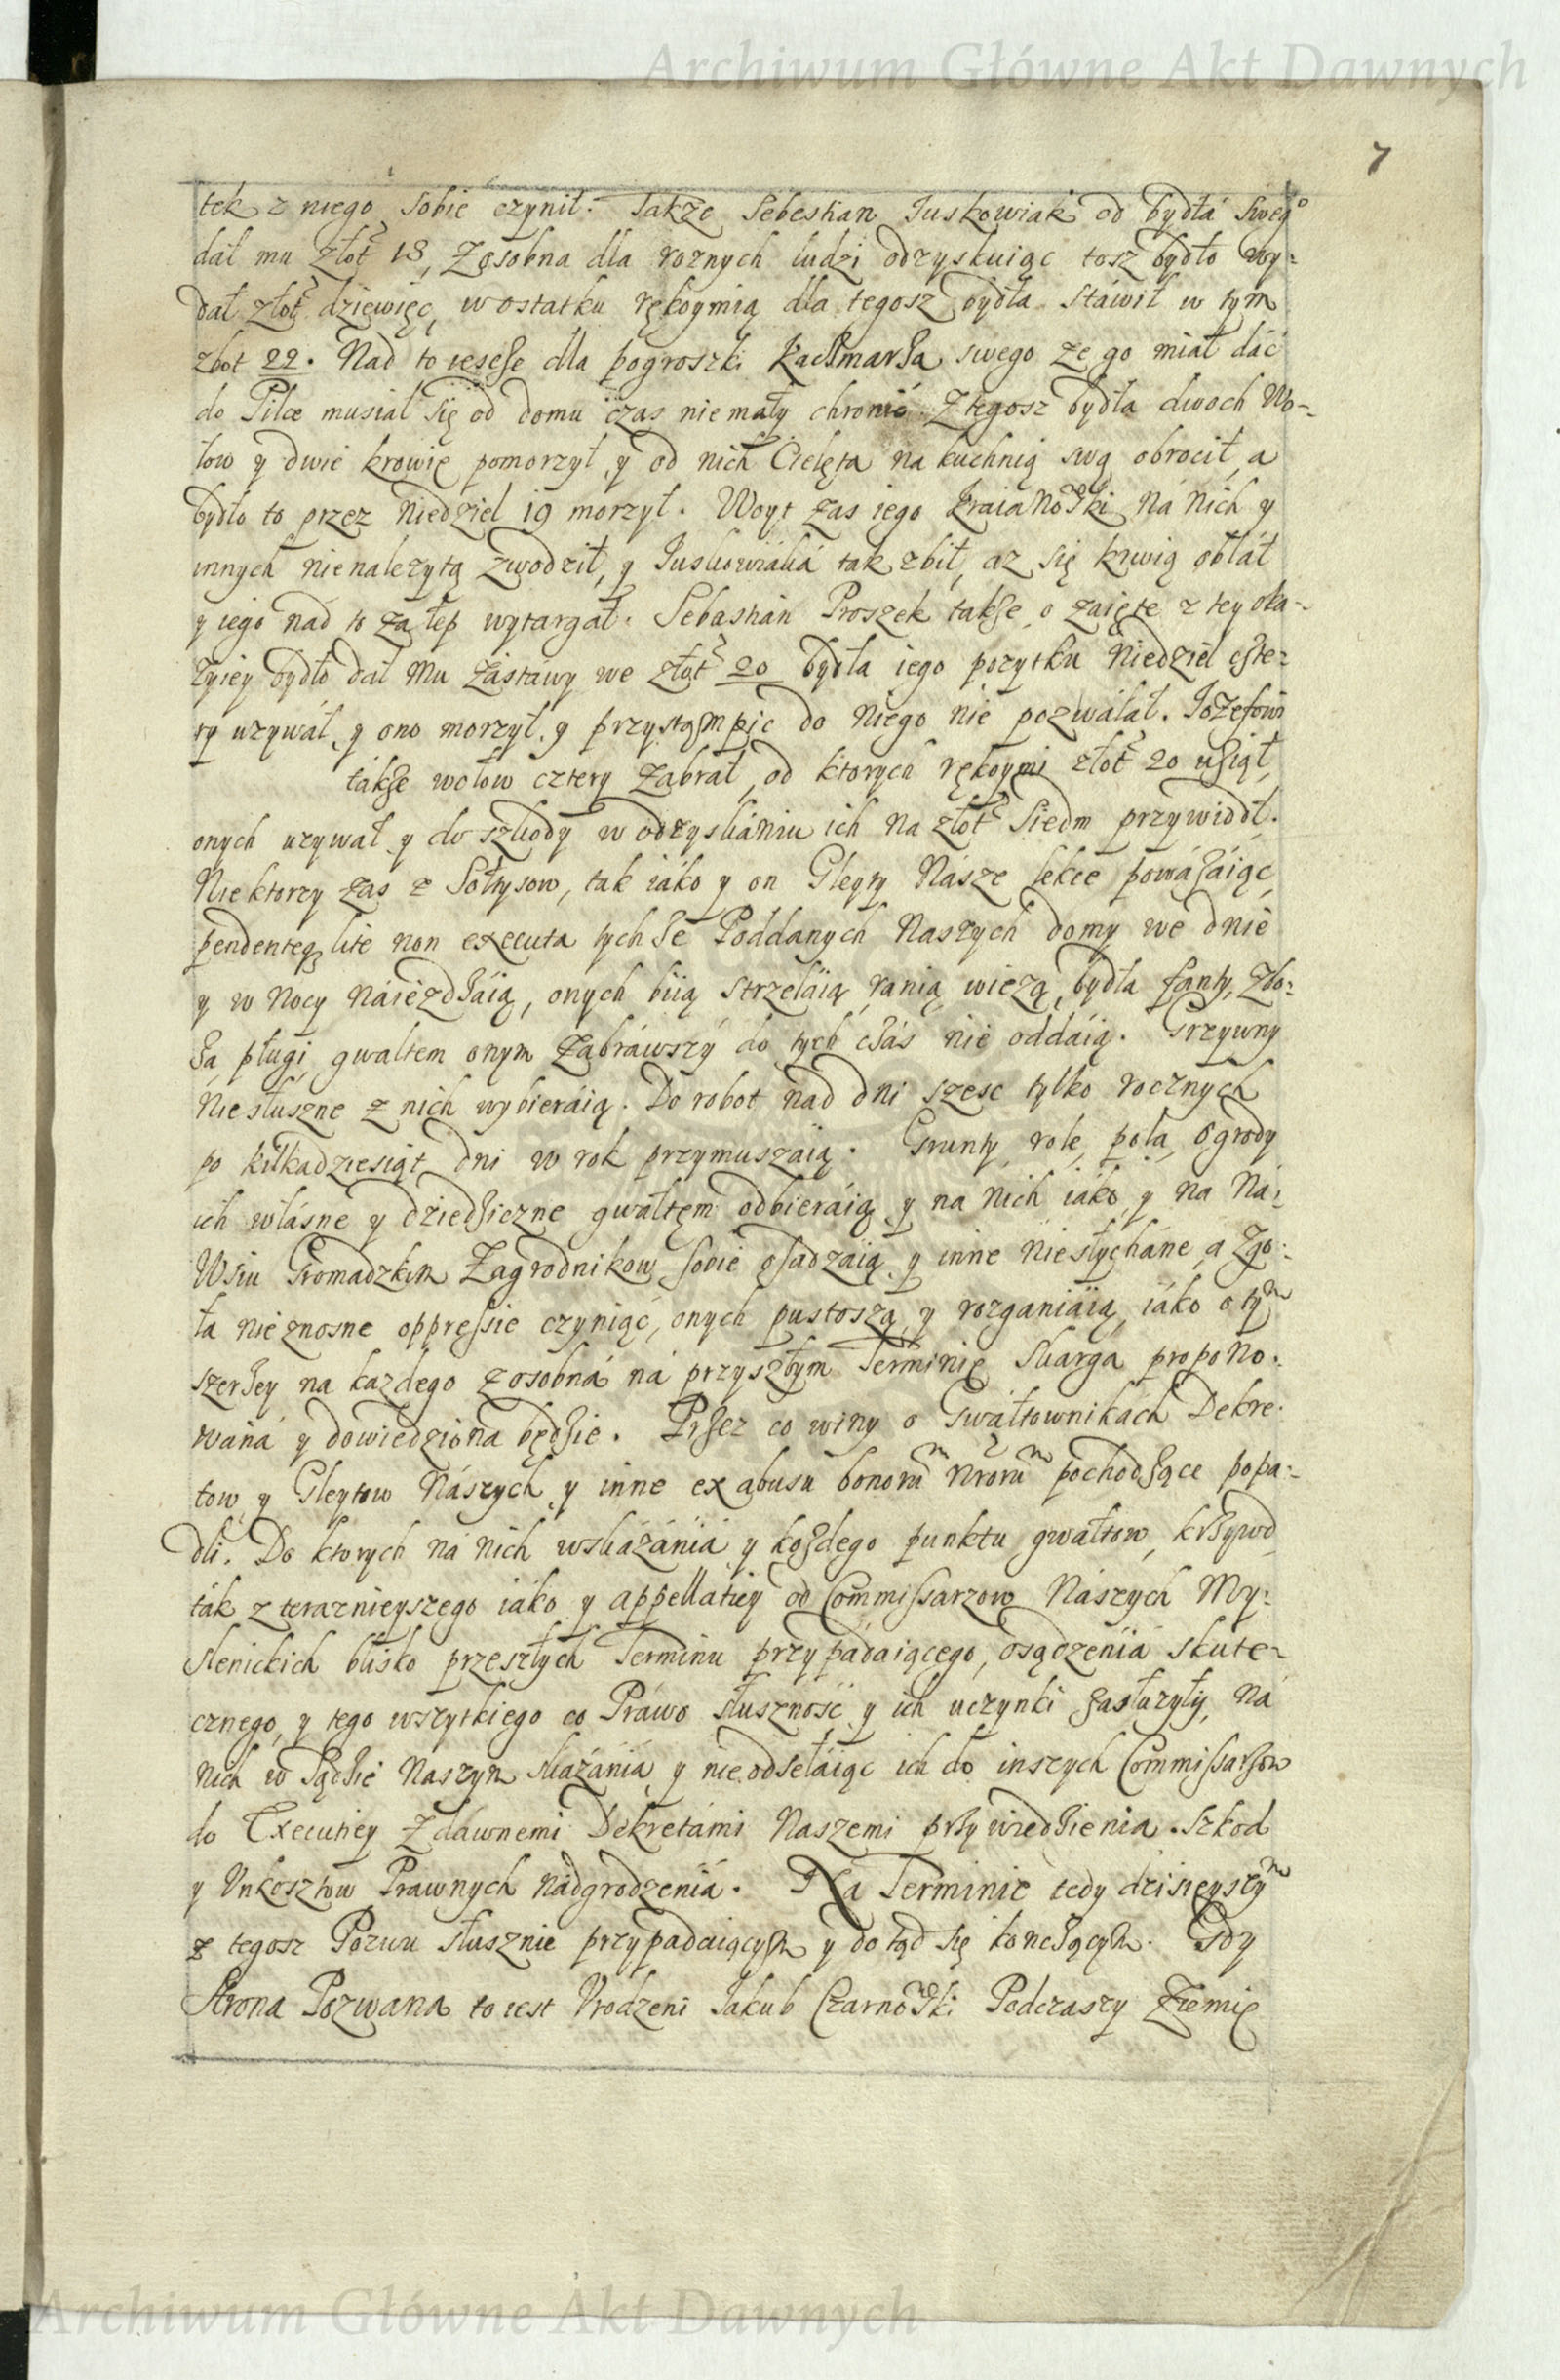 Archiwum Główne Akt Dawnych
7
tek z niego sobie czynił. Także Sebestian Juskowiak od bydła sweg°
dał mu złot 18, Zosobna dla roznych ludzi odzyskuiąc tosz bydło wy:
dał złot dziewięc, w ostatku rękoymią dla tegosz bydła stáwił w tym
złot 22. Nad to iescże dla pogroszki Kacżmarża swego ze go miał dác
do Pilce musiał się od domu czas niemały chronić. Z tegosz bydła dwoch Wo-
łow y dwie krowie pomorzył, y od nich Cielęta na kuchnią swą obrocił, a
bydło to przez Niedziel 19 morzył. Woyt zas iego Kraianowski ná nich y
innych nienalezytą zwodził, y Juskowiáká tak zbił, az się krwią obłáł
y iego nad to za łep wytargał. Sebastian Proszek także, o zaięte z tey oka-
zyiey bydło dał mu zástawy we złot 20 bydła iego pozytku Niedziel czte-
ry uzywáł, y ono morzył, y przystąmpic do niego nie pozwáłał. Jozefowi
tákże wołow cztery zabrał, od ktorych rękoymi złot 20 użiął,
onych uzywał y do szkody w odzyskániu ich na złot Siedm przywiodł.
Niektorzy zas z Sołtysow, tak iáko y on Gleyty Násze lekce powáżáiąc,
pendenteq lite non executa tychże Poddanych Naszych domy we dnie
y w Nocy náieżdżáią, onych biią strzeláią, ranią, wiezą, bydła fanty, zbo:
ża, pługi, gwałtem onym zabráwszy do tych czás nie oddáią. Grzywny
niesłuszne z nich wybieráią. Do robot nad dni szesc tylko rocznych
po kilkadziesiąt dni w rok przymuszáią. Grunty, role, pola, ogrody
ich włásne y dziedżiczne gwałtęm odbieráią, y na nich iáko, y na Ná:
Wsiu Gromadzkim Zagrodnikow sobie osadzáią, y inne niesłycháne, a Zgo:
ła nieznosne oppressie czyniąc, onych pustoszą, y rozganiáią, iáko o tym
szerżey na kazdego zosobná ná przyszłym Terminię skarga propono:
waná y dowiedziona będżie. Przez co winy o Gwáłtownikách Dekre:
tow y Gleytow Nászych, y inne ex abusu bonoru nroru pochodżące popa:
dli. Do ktorych ná nich wskázániá y każdego punktu gwałtow, krżywd
ták z teraznieyszego iáko y appellatiey od Commissarzow Nászych My:
slenickich blisko przeszłych Terminu przypádaiącego, osądzeniá skute-
cznego, y tego wszytkiego co Práwo słusznośc y ich uczynki żasłuzyły, ná
nich w Sądżie Naszym skazániá, y nie odsełáiąc ich do inszych Commissarżow
do Executiey z dawnemi Dekretámi Naszemi przywiedżienia. Szkod
y Unkosztow Prawnych nádgrodzeniá. Na Terminie tedy dzisieyszym
z tegosz Pozwu słusznie przypadaiącym y dotąd się kończącym. Gdy
Strona Pozwana to iest Urodzeni Jakub Czarnowski Podczaszy Ziemie
Archiwum Główne Akt Dawnych